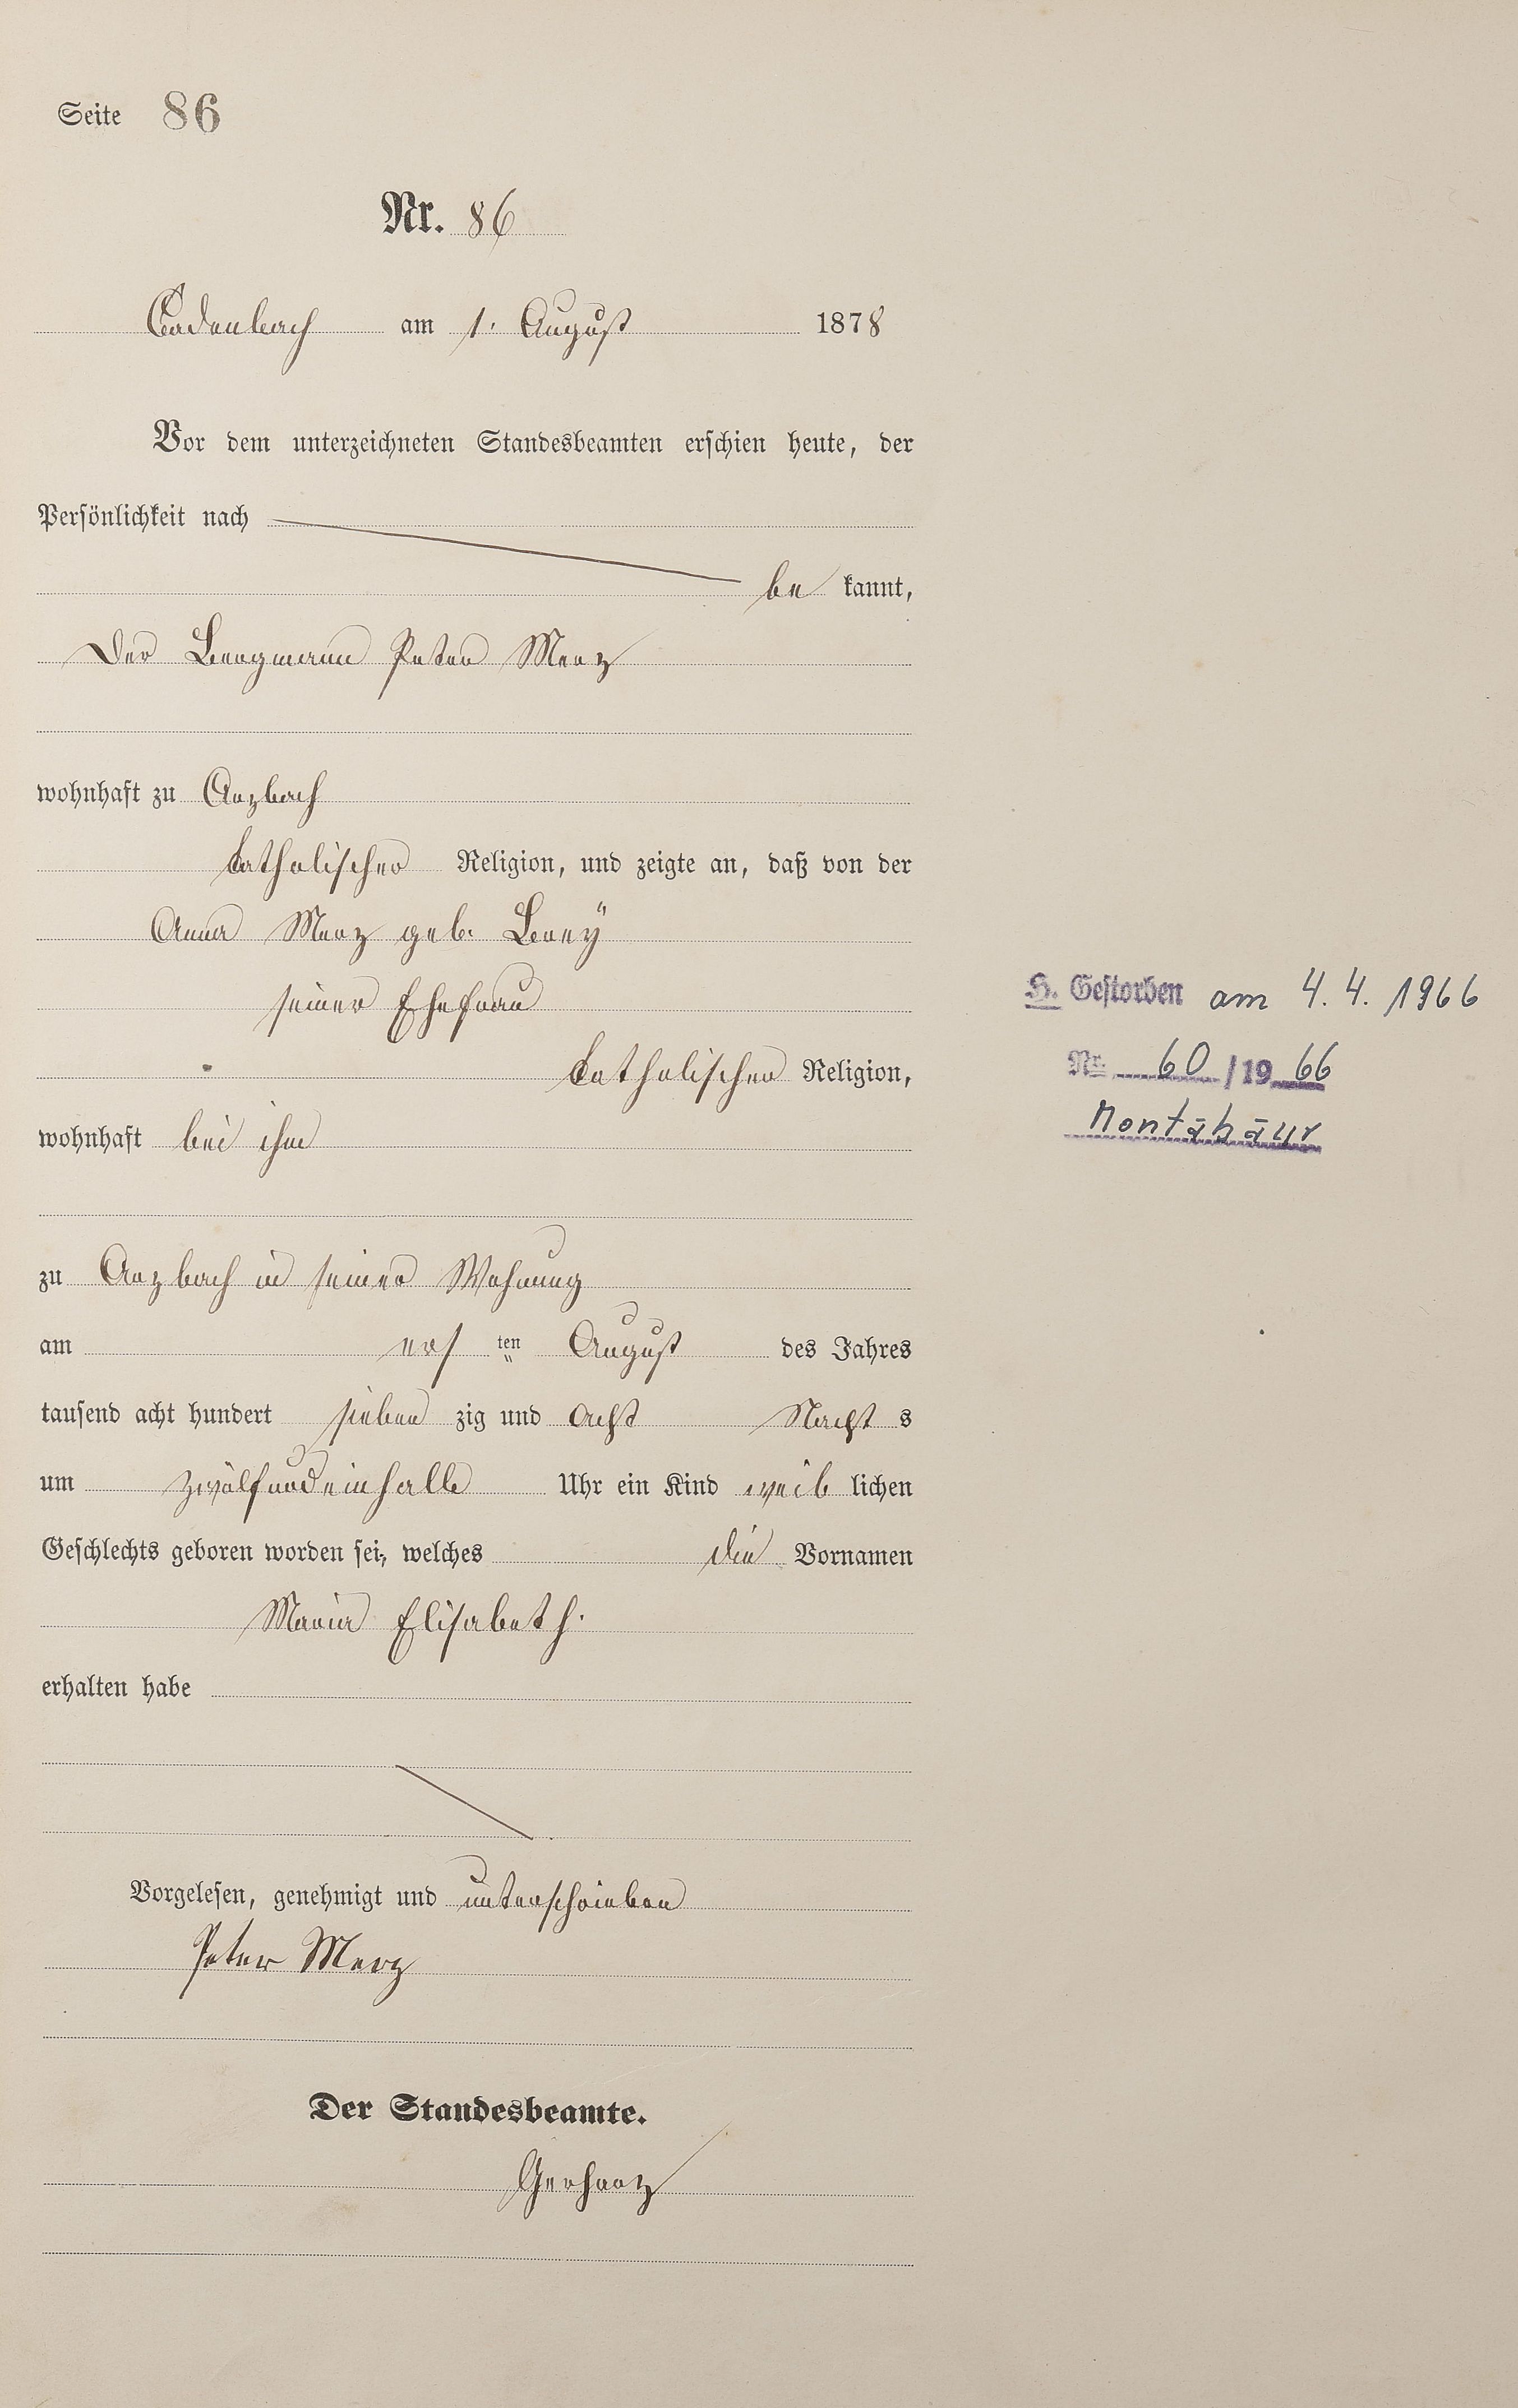 Seite 86
Nr. 86
Cadenbach am 1. August 1878
Vor dem unterzeichneten Standesbeamten erschien heute, der
Persönlichkeit nach
be kannt,
Der Bergmann Peter Merz
wohnhaft zu Arzbach
katholischer Religion, und zeigte an, daß von der
Anna Merz geb. Breÿ
seiner Ehefrau
katholischer Religion,
wohnhaft bei ihm
zu Arzbach in seiner Wohnung
am ers ten August des Jahres
tausend acht hundert sieben zig und acht Nacht s
um zwölfundeinhalb Uhr ein Kind weib lichen
Geschlechts geboren worden sei, welches die Vornamen
Maria Elisabeth.
erhalten habe
Vorgelesen, genehmigt und unterschrieben
Peter Merz
Der Standesbeamte.
Gerharz
H. Gestorben am 4.4.1966
Nr. 60/1966
Montabaur